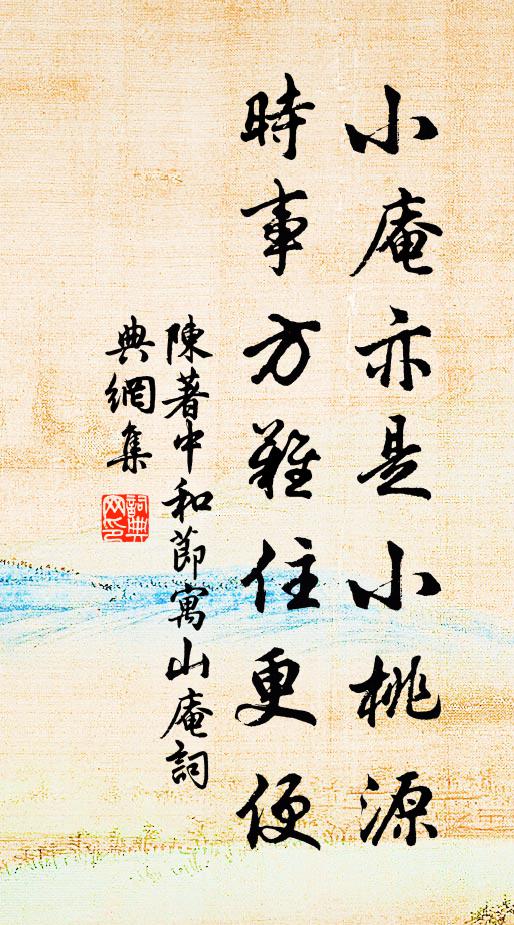 小庵亦是小桃源
時事方難住更便
陳著中和節寓山庵詞
典網集
詞典网印